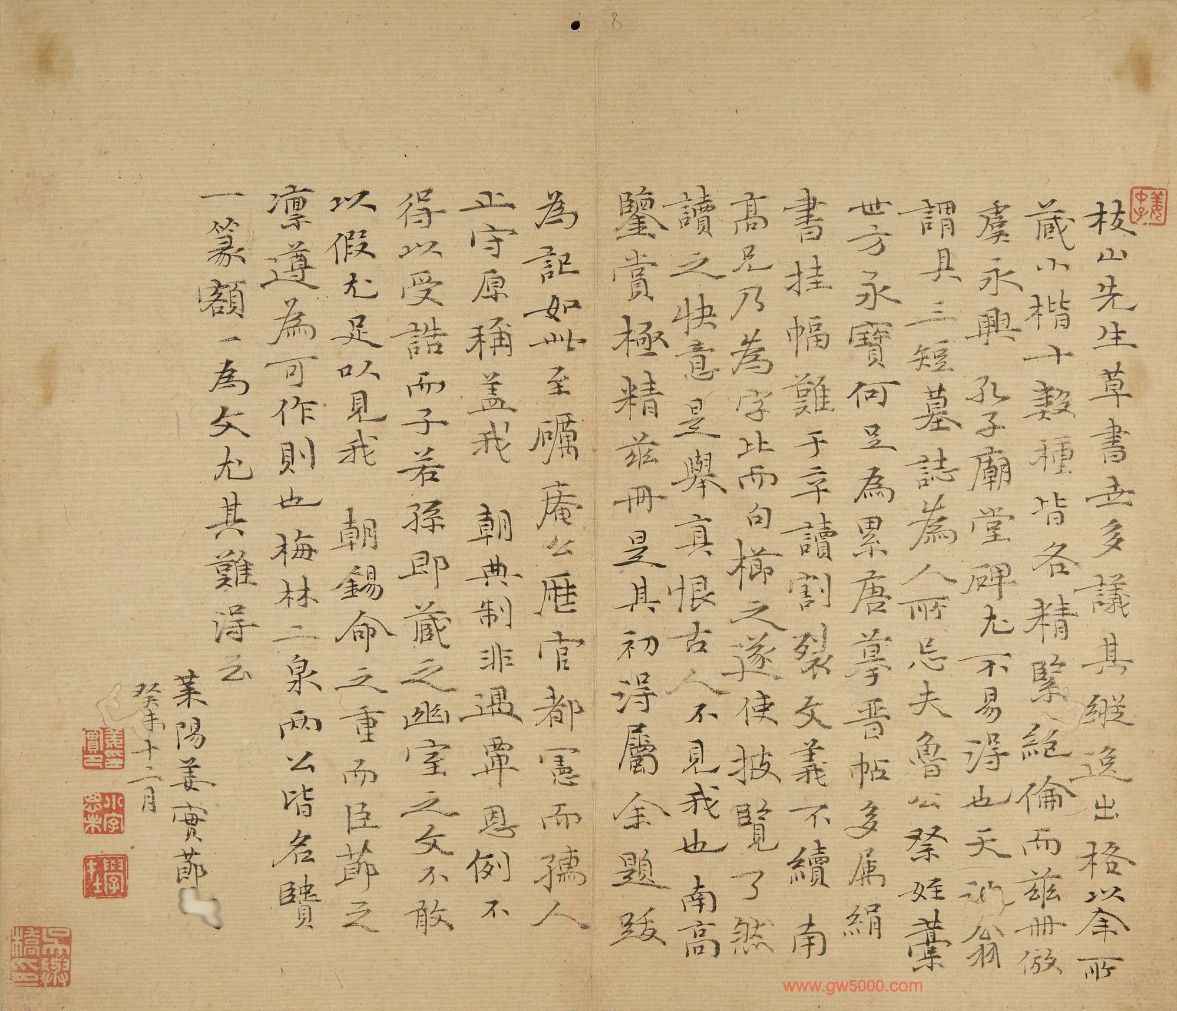 枝山先生草書世多議其縱逸出格以余所
藏小楷十數種皆各精緊絕倫而茲冊倣
虞永興孔子廟堂碑尤不易得也天翁
謂具三短墓誌為人所忌夫魯公祭姪藁
世方永寶何足為累唐摹晉帖多屬絹
書挂幅難于卒讀割裂文義不續南
高兄乃為字比而句櫛之遂使披覽了然
讀之快意是舉真恨古人不見我也南高
鑒賞極精茲冊是其初得屬余題跋
為記如此至礪庵公歷官都憲而孺人
止守原稱蓋我朝典制非遇覃恩例不
得以受誥而子若孫即藏之幽室之文不敢
以假尤足以見我朝錫命之重而臣節之
凜遵為可作則也梅林二泉兩公皆名
一篆額一為文尤其難得云
萊陽姜實節
癸未十二月
www.gw5000.com